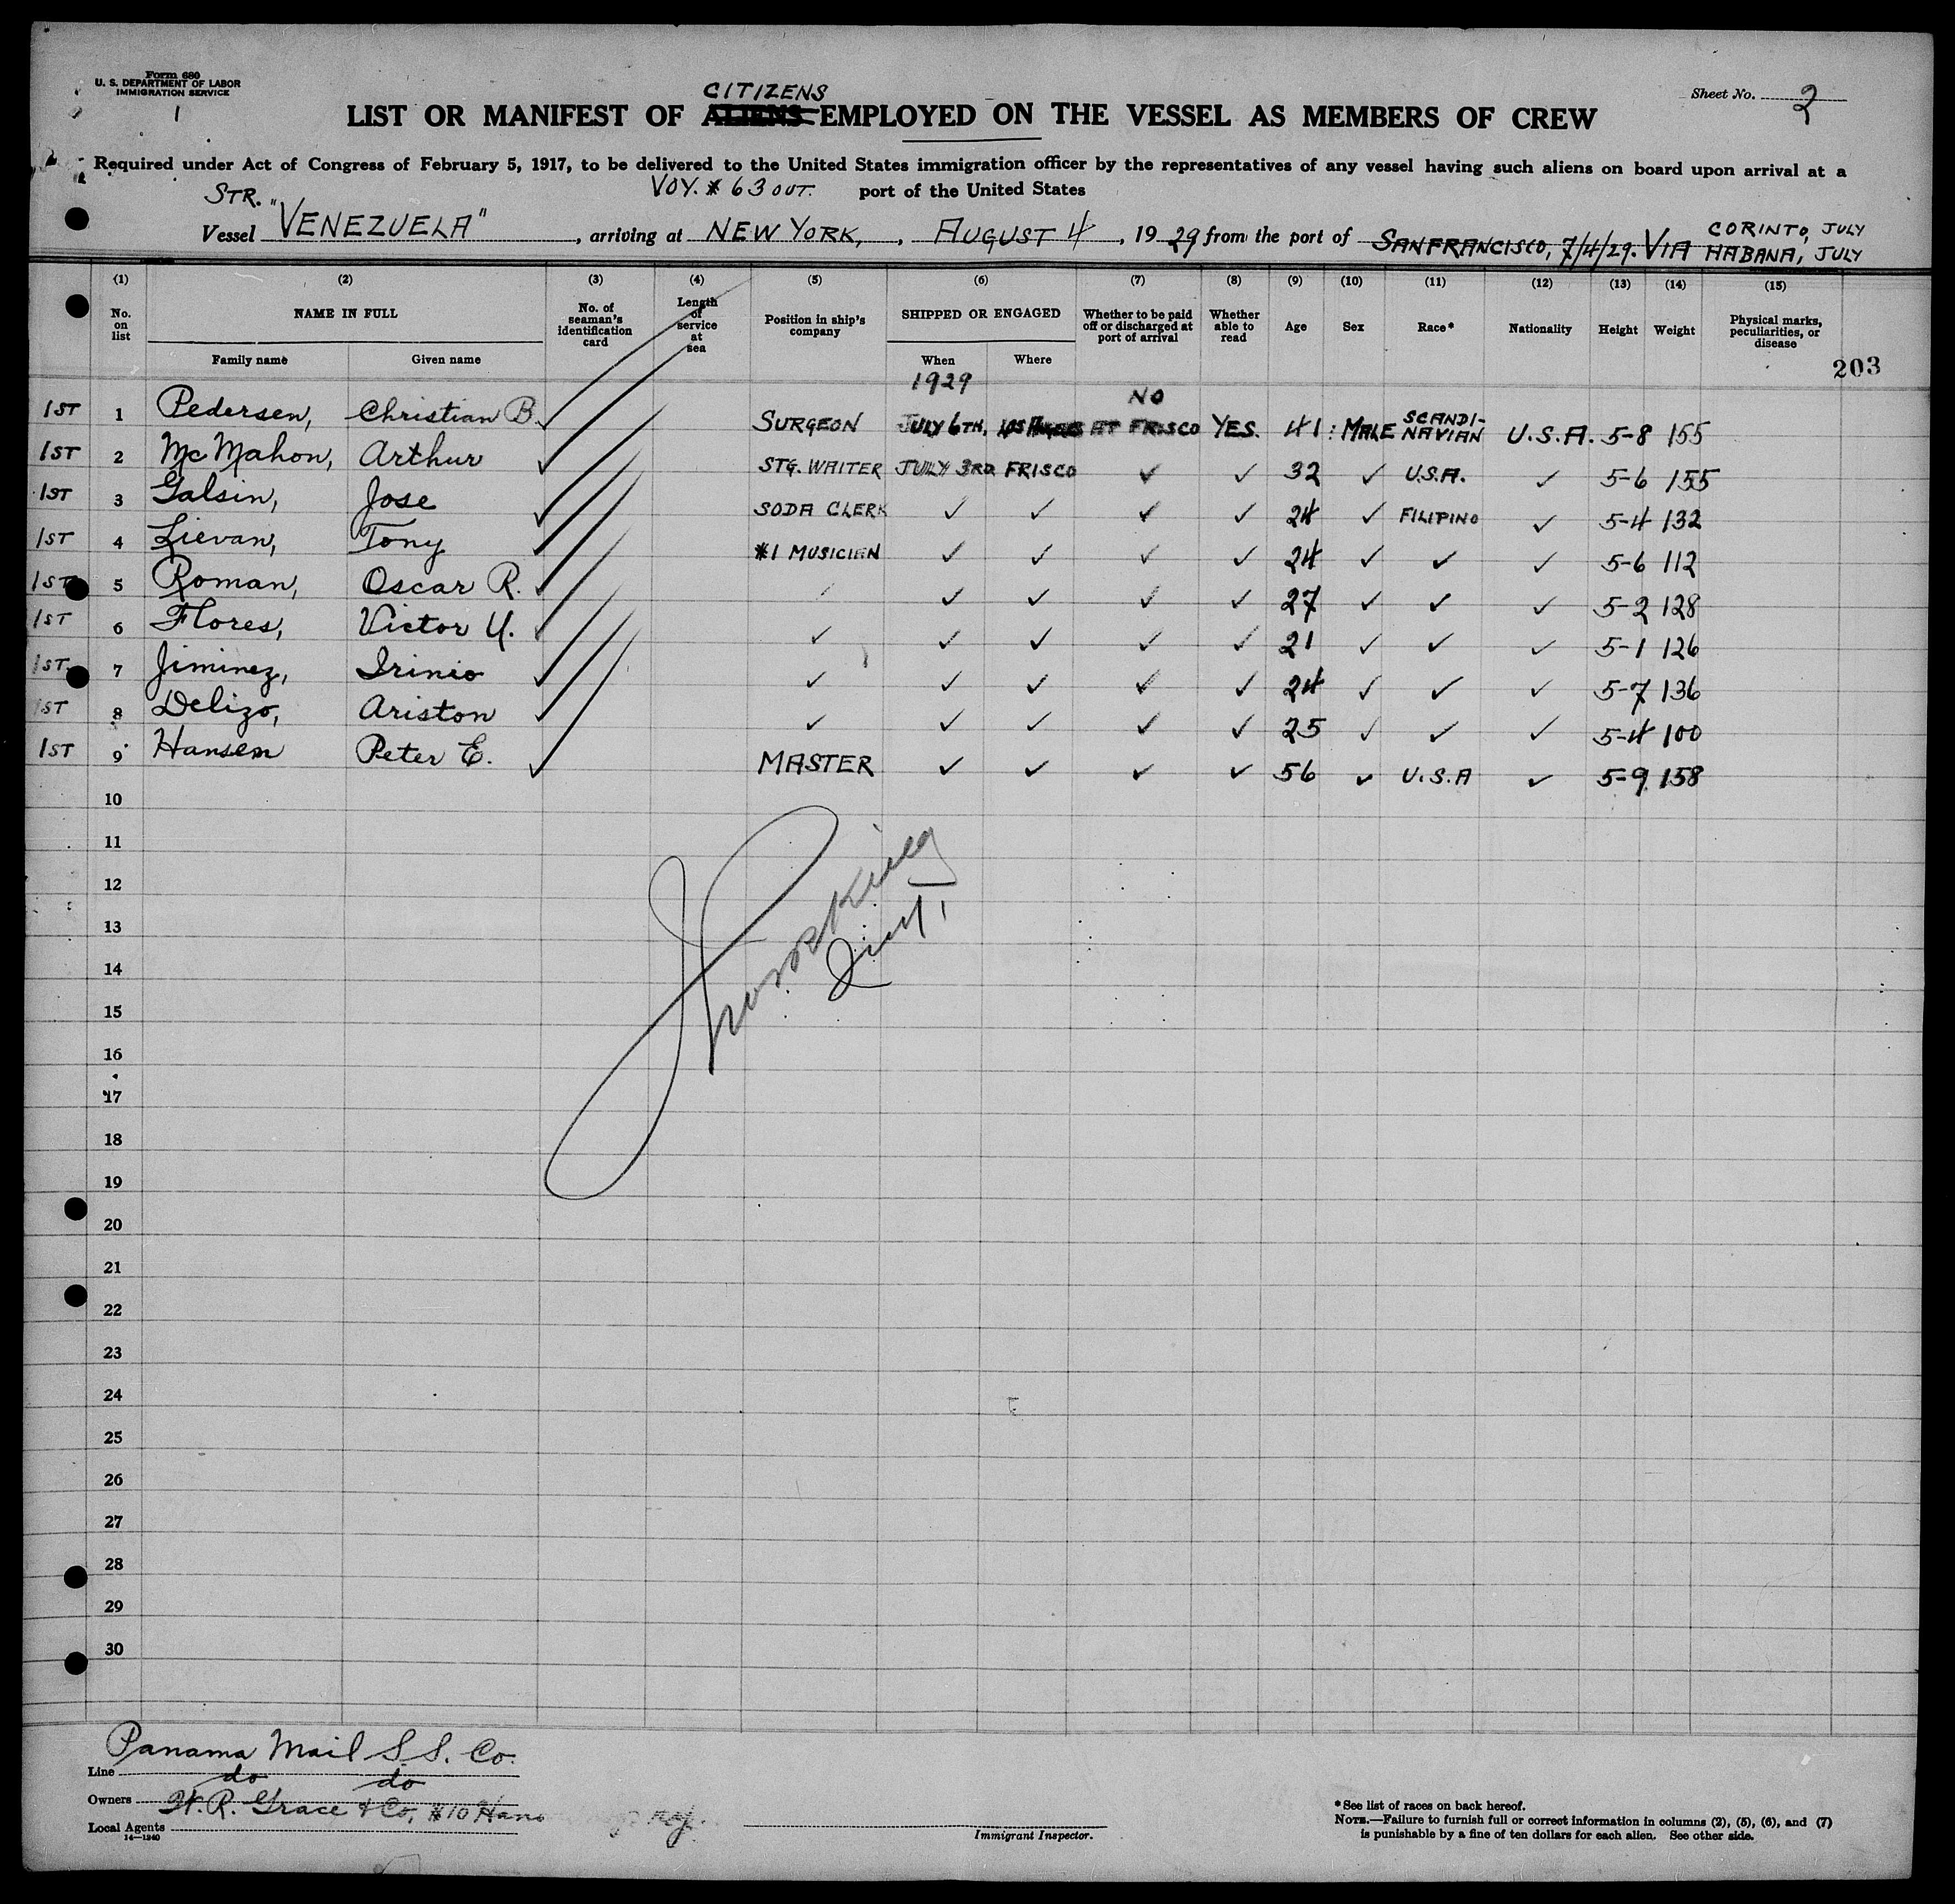 Form 680
U. S. DEPARTMENT OF LABOR
IMMIGRATION SERVICE
1
Sheet No. 2
CITIZENS
LIST OR MANIFEST OF ALIENS EMPLOYED ON THE VESSEL AS MEMBERS OF CREW
Required under Act of Congress of February 5, 1917, to be delivered to the United States immigration officer by the representatives of any vessel having such aliens on board upon arrival at a
STR. VOY. # 63 OUT. port of the United States
Vessel "VENEZUELA", arriving at NEW YORK, AUGUST 4, 1929 from the port of SAN FRANCISCO, 7/4/29. VIA CORINTO, JULY
HABANA, JULY
(1) (2) (3) (4) (5) (6) (7) (8) (9) (10) (11) (12) (13) (14) (15)
No. on list NAME IN FULL No. of seaman's identification card Length of service at sea Position in ship's company SHIPPED OR ENGAGED Whether to be paid off or discharged at port of arrival Whether able to read Age Sex Race* Nationality Height Weight Physical marks, peculiarities, or disease
Family name Given name When Where
203
1929 NO
1ST 1 Pedersen, Christian B. ✓ SURGEON JULY 6TH, LOS ANGELES AT FRISCO YES. 41 MALE SCANDI-NAVIAN U.S.A. 5-8 155
1ST 2 McMahon, Arthur ✓ STG. WAITER JULY 3RD FRISCO ✓ ✓ 32 ✓ U.S.A. ✓ 5-6 155
1ST 3 Galsin, Jose ✓ SODA CLERK ✓ ✓ ✓ ✓ 24 ✓ FILIPINO ✓ 5-4 132
1ST 4 Lievan, Tony ✓ #1 MUSICIEN ✓ ✓ ✓ ✓ 24 ✓ ✓ ✓ 5-6 112
1ST 5 Roman, Oscar R. ✓ ✓ ✓ ✓ ✓ 27 ✓ ✓ ✓ 5-2 128
1ST 6 Flores, Victor Y. ✓ ✓ ✓ ✓ ✓ ✓ 21 ✓ ✓ ✓ 5-1 126
1ST. 7 Jiminez, Irinio ✓ ✓ ✓ ✓ ✓ ✓ 24 ✓ ✓ ✓ 5-7 136
1ST 8 Delizo, Ariston ✓ ✓ ✓ ✓ ✓ ✓ 25 ✓ ✓ ✓ 5-4 100
1ST 9 Hansen Peter E. ✓ MASTER ✓ ✓ ✓ ✓ 56 ✓ U.S.A ✓ 5-9 158
10
11
12
13
14
15
16
17
18
19
20
21
22
23
24
25
26
27
28
29
30
Line Panama Mail S.S. Co.
Owners do do
Local Agents W. R. Grace & Co, #10 Hano
14—1240
Immigrant Inspector.
*See list of races on back hereof.
NOTE.—Failure to furnish full or correct information in columns (2), (5), (6), and (7)
is punishable by a fine of ten dollars for each alien. See other side.